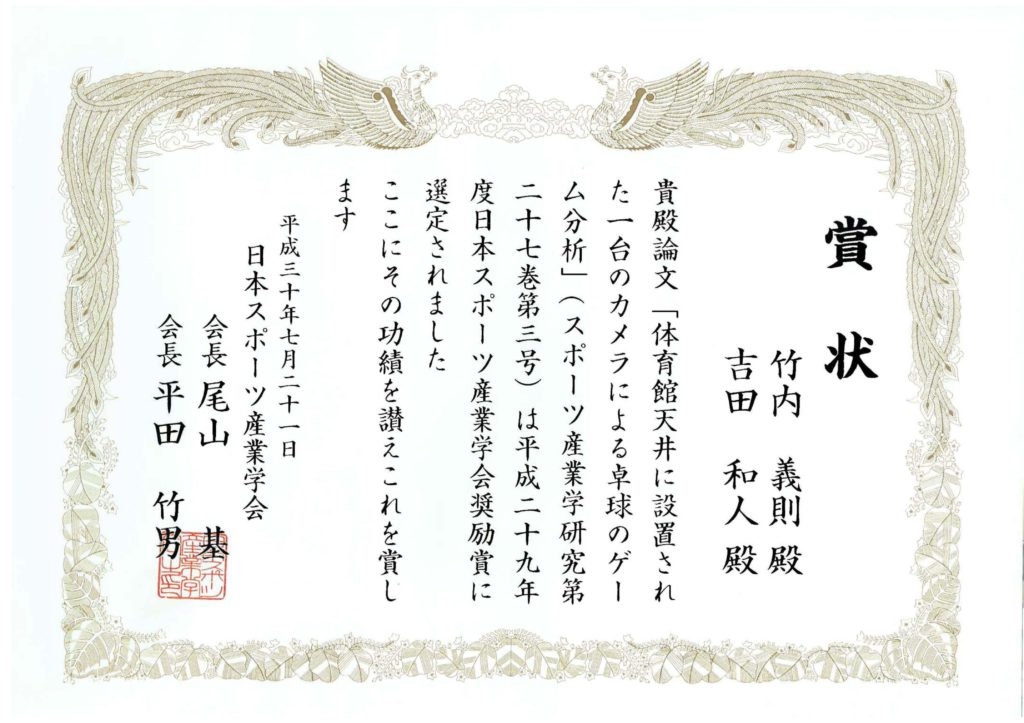 賞状
竹内 義則 殿
吉田 和人 殿
貴殿論文「体育館天井に設置され
た一台のカメラによる卓球のゲー
ム分析」（スポーツ産業学研究第
二十七巻第三号）は平成二十九年
度日本スポーツ産業学会奨励賞に
選定されました
ここにその功績を讃えこれを賞し
ます
平成三十年七月二十一日
日本スポーツ産業学会
会長 尾山 基
会長 平田 竹男